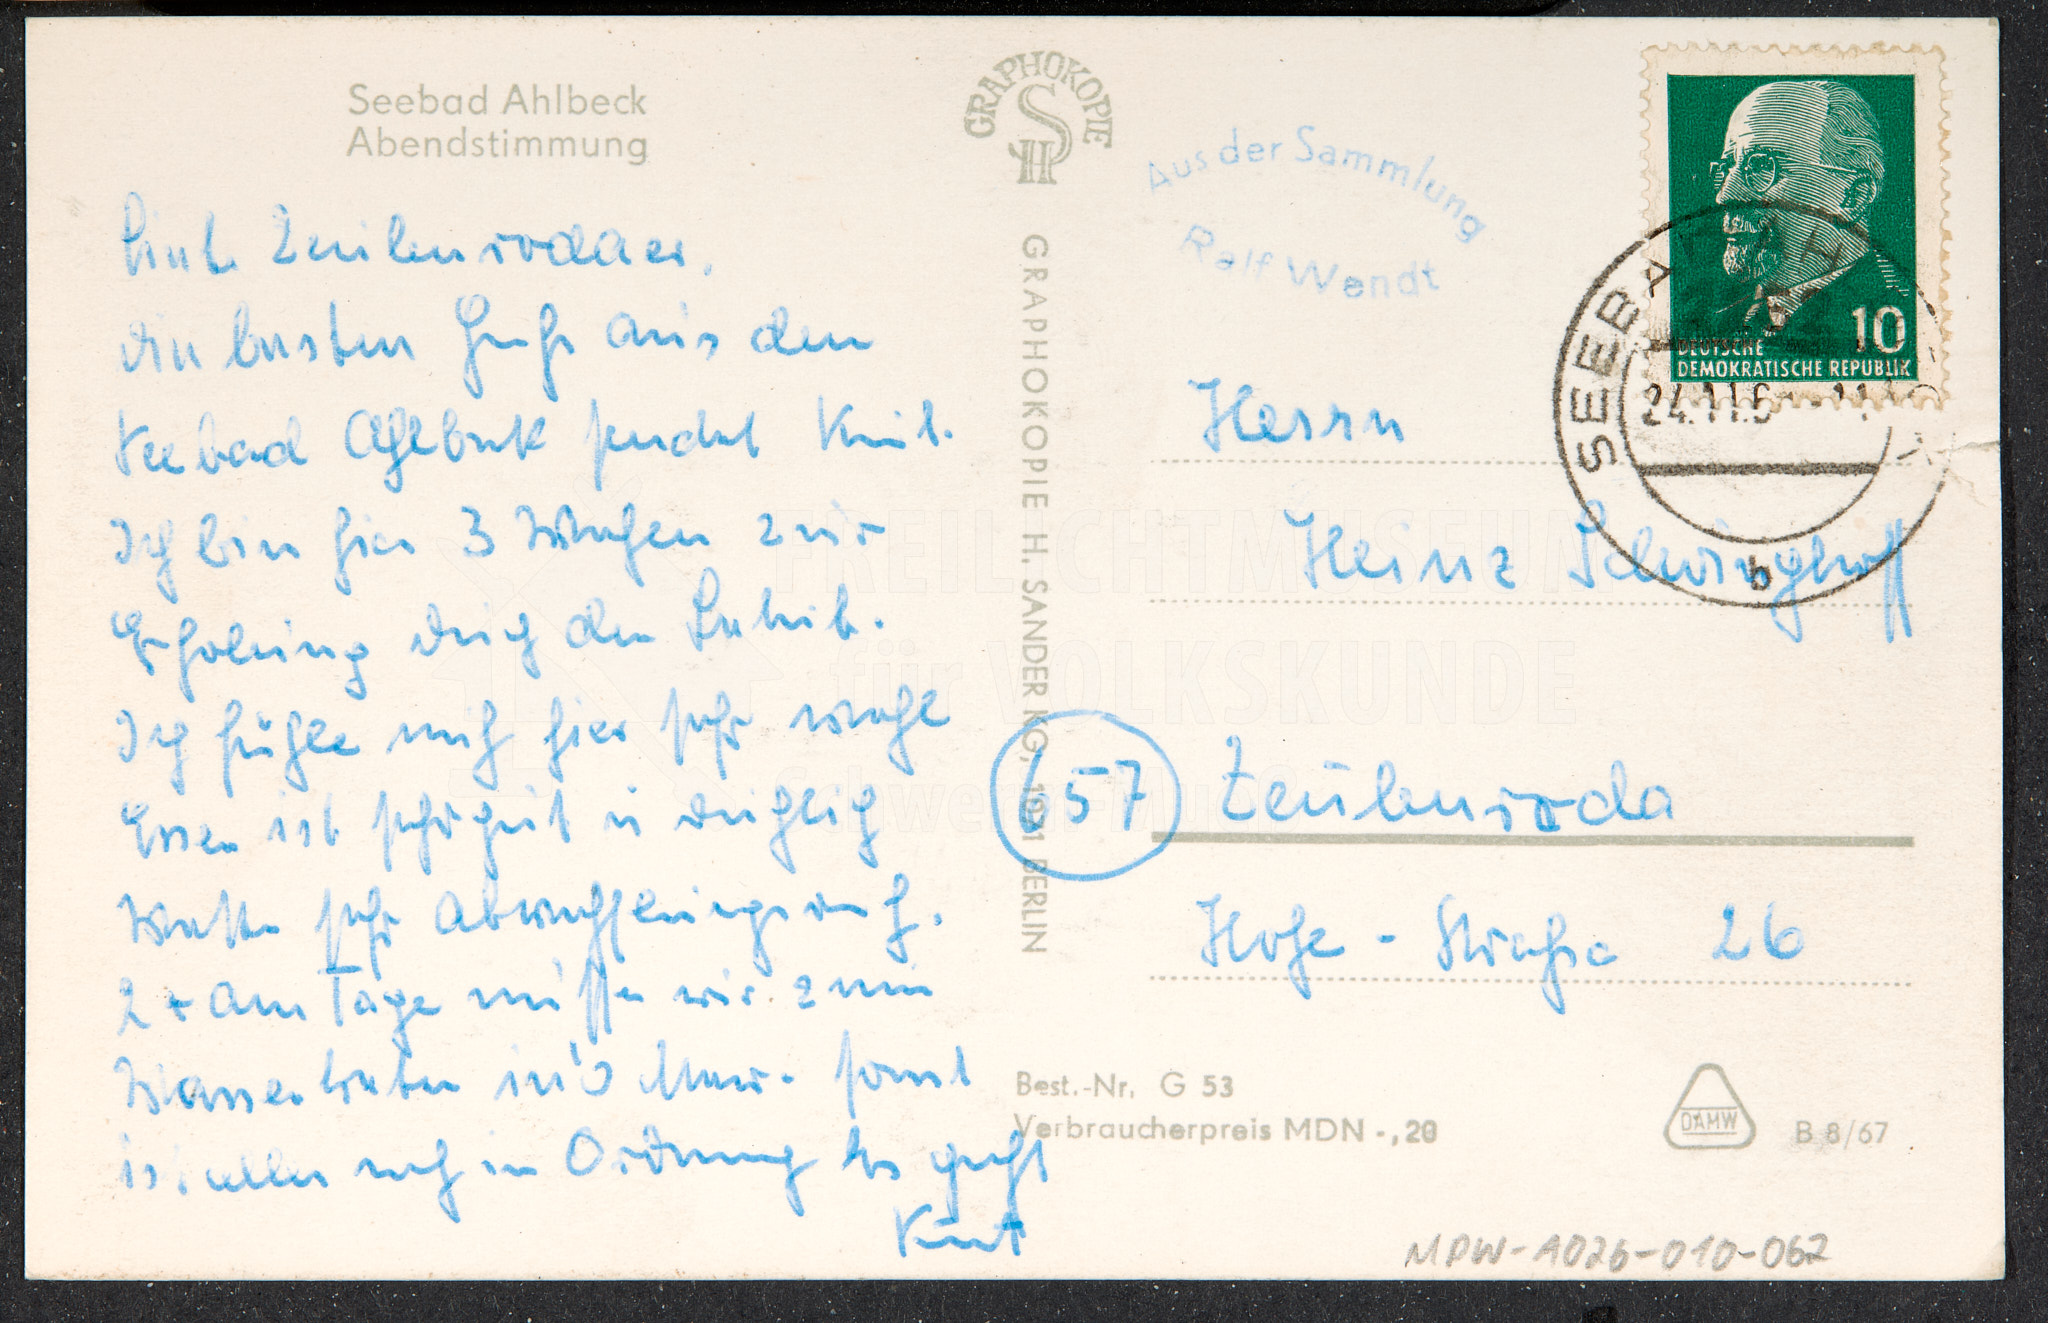 Seebad Ahlbeck
Abendstimmung
Liebe Zeulenrodaer,
die besten Grüße aus dem
Seebad Ahlbeck sendet Kurt.
Ich bin hier 3 Wochen zur
Erholung durch den Betrieb.
Ich fühle mich hier sehr wohl
Essen ist sehr gut u reichlich
Wetter sehr Abwechslungsreich.
2 x am Tage müssen wir zum
Wassertreten ins Meer. sonst
ist alles noch in Ordnung bis
Kurt
GRAPHOKOPIE
SH
GRAPHOKOPIE H. SANDER KG, 1971 BERLIN
Aus der Sammlung
Ralf Wendt
10
DEUTSCHE
DEMOKRATISCHE REPUBLIK
SEEBAD AH
24.11.6
b
Herrn
Heinz Schwinghoff
657 Zeulenroda
Hohe - Straße 26
Best.-Nr. G 53
Verbraucherpreis MDN -,20
DAMW
B 8/67
MPW-A026-010-062
FREILICHTMUSEUM
für VOLKSKUNDE
Schwerin-Mueß